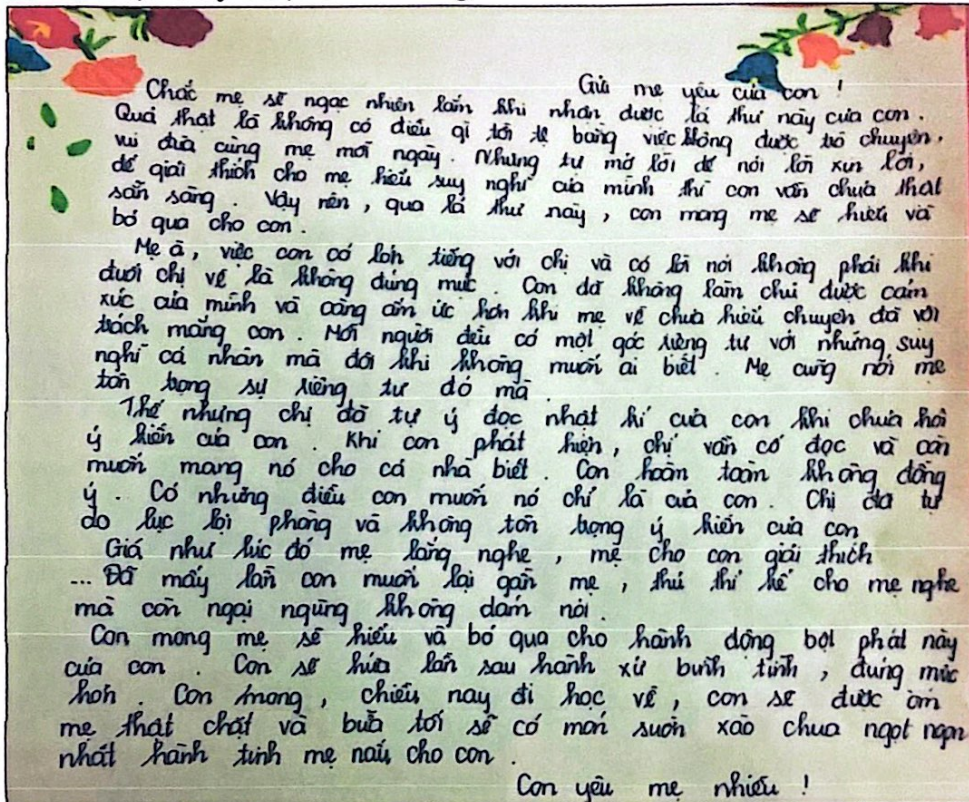 Gửi mẹ yêu của con !
Chắc mẹ sẽ ngạc nhiên lắm khi nhận được lá thư này của con.
Quả thật là không có điều gì tồi tệ bằng việc không được trò chuyện,
vui đùa cùng mẹ mỗi ngày. Nhưng tự mở lời để nói lời xin lỗi,
để giải thích cho mẹ hiểu suy nghĩ của mình thì con vẫn chưa thật
sẵn sàng. Vậy nên, qua lá thư này, con mong mẹ sẽ hiểu và
bỏ qua cho con.
Mẹ à, việc con có lớn tiếng với chị và có lời nói không phải khi
đuổi chị về là không đúng mực. Con đã không làm chủ được cảm
xúc của mình và càng ấm ức hơn khi mẹ về chưa hiểu chuyện đã vội
trách mắng con. Mỗi người đều có một góc riêng tư với những suy
nghĩ cá nhân mà đôi khi không muốn ai biết. Mẹ cũng nói mẹ
tôn trọng sự riêng tư đó mà.
Thế nhưng chị đã tự ý đọc nhật kí của con khi chưa hỏi
ý kiến của con. Khi con phát hiện, chị vẫn cố đọc và còn
muốn mang nó cho cả nhà biết. Con hoàn toàn không đồng
ý. Có những điều con muốn nó chỉ là của con. Chị đã tự
do lục lọi phòng và không tôn trọng ý kiến của con
Giá như lúc đó mẹ lắng nghe, mẹ cho con giải thích
... Đã mấy lần con muốn lại gần mẹ, thủ thỉ kể cho mẹ nghe
mà còn ngại ngùng không dám nói.
Con mong mẹ sẽ hiểu và bỏ qua cho hành động bột phát này
của con. Con sẽ hứa lần sau hành xử bình tĩnh, đúng mực
hơn. Con mong, chiều nay đi học về, con sẽ được ôm
mẹ thật chặt và bữa tối sẽ có món sườn xào chua ngọt ngon
nhất hành tinh mẹ nấu cho con.
Con yêu mẹ nhiều !